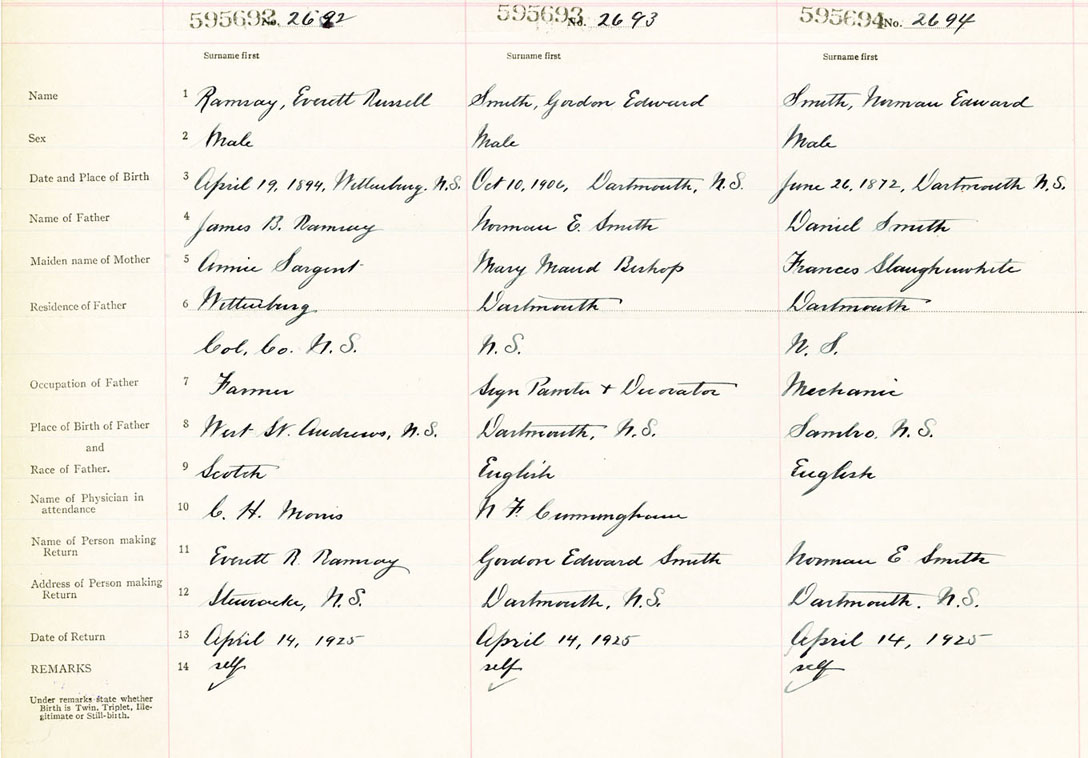 595692 No. 2692 595693 No. 2693 595694 No. 2694
Surname first Surname first Surname first
Name 1 Ramsay, Everett Russell Smith, Gordon Edward Smith, Norman Edward
Sex 2 Male Male Male
Date and Place of Birth 3 April 19, 1894, Wittenburg. N.S. Oct 10, 1906, Dartmouth, N.S. June 26, 1872, Dartmouth N.S.
Name of Father 4 James B. Ramsay Norman E. Smith Daniel Smith
Maiden name of Mother 5 Annie Sargent Mary Maud Bishop Frances Slaughenwhite
Residence of Father 6 Wittenburg Dartmouth Dartmouth
Col. Co. N.S. N.S. N.S.
Occupation of Father 7 Farmer Sign Painter + Decorator Mechanic
Place of Birth of Father 8 West St. Andrews, N.S. Dartmouth, N.S. Sambro. N.S.
and
Race of Father. 9 Scotch English English
Name of Physician in
attendance 10 C. H. Morris N F. Cunningham
Name of Person making
Return 11 Everett R. Ramsay Gordon Edward Smith Norman E Smith
Address of Person making
Return 12 Stewiacke, N.S. Dartmouth, N.S. Dartmouth. N.S.
Date of Return 13 April 14, 1925 April 14, 1925 April 14, 1925
REMARKS 14 self self self
Under remarks state whether
Birth is Twin, Triplet, Ille-
gitimate or Still-birth.